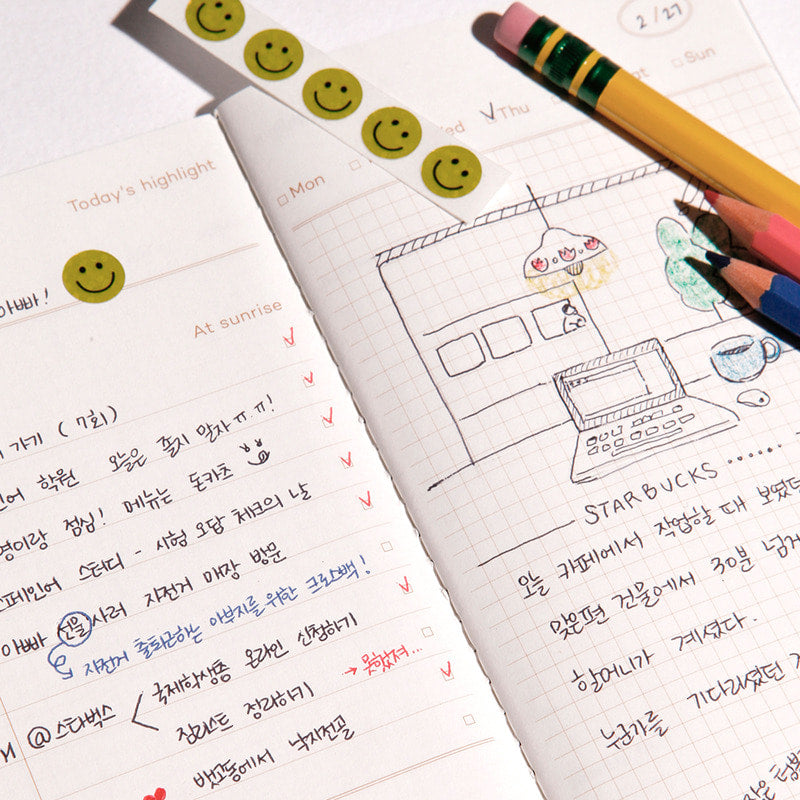 Today's highlight
아빠!
At sunrise
가기 (7회)
학원 오늘은 졸지 말자ㅠㅠ!
점심! 메뉴는 돈카츠
스터디 - 시험 오답 체크의 날
아빠 선물 사러 자전거 매장 방문
자전거 출퇴근하는 아부지를 위한 크로스백!
@스타벅스
국제학생증 온라인 신청하기
짐리스트 정리하기
→ 못했져...
뱃고동에서 낙지전골
2/27
Mon
Thu
Sun
STARBUCKS
오늘 카페에서 작업할 때 보였던
맞은편 건물에서 30분 넘게
할머니가 계셨다.
누군가를 기다리셨던